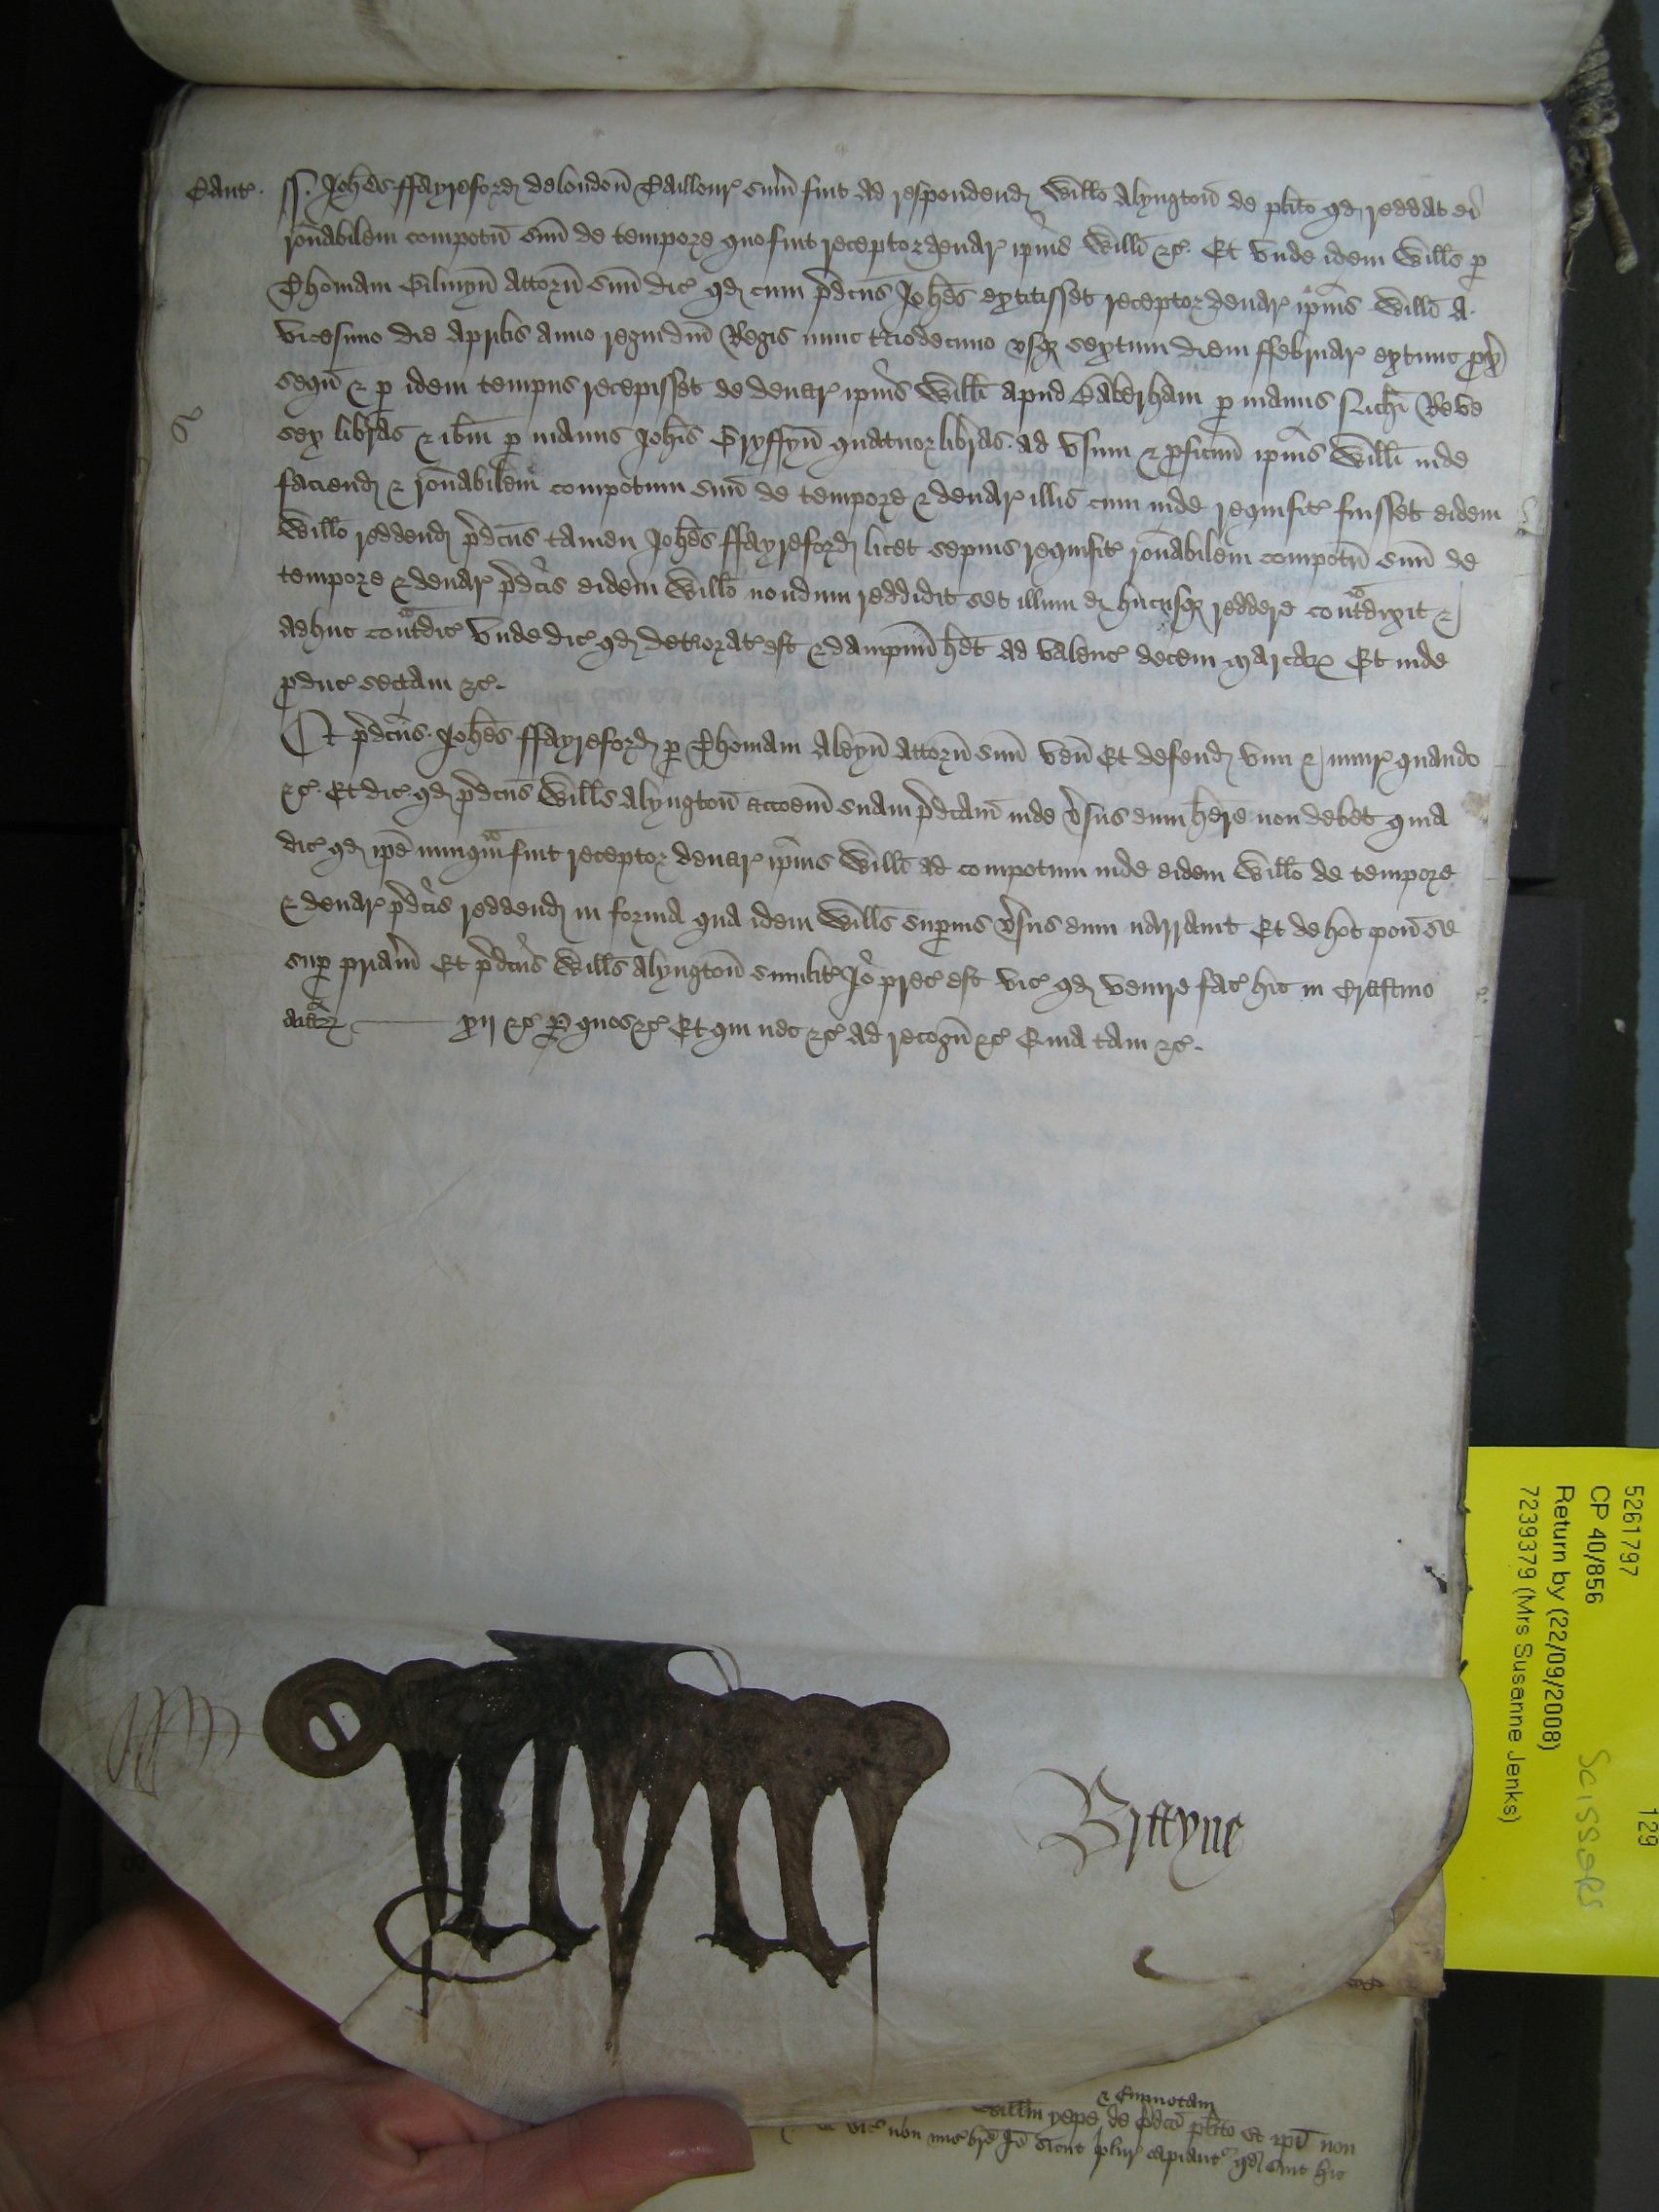 Cant'. ss. Joh̄es ffayreford de london̄ Taillour sum̄ fuit ad respondend Willo Alyngton̄ de pl̄ito qd reddat ei
rōnabilem compotū suū de tempore quo fuit receptor denar ip̄ius Willi &c. Et vnde idem Will̄s p
Thomam attorn̄ suū dic' qd cum p̄dcūs Joh̄es extitisset receptor denar ip̄ius Willi A.
vicesimo die Aprilis anno regni dn̄i Regis nunc t'ciodecimo vsq sextum diem ffebruar extunc px̄
sequn̄ & p idem tempus recepisset de denar ip̄ius Willi apud p manus Nichī Reve
sex libras & ibm̄ p manus Joh̄is Gryffyn̄ quatuor libras ad vsum & pficuū ip̄ius Willi inde
faciend & rōnabilem compotum suū de tempore & denar illis cum inde requisit' fuisset eidem
Willo reddend p̄dcūs tamen Joh̄es ffayreford licet sepius requisit' rōnabilem compotū suū de
tempore & denar p̄dcīs eidem Willo nondum reddidit set illum ei hucusq reddere cont̄dixit &
adhuc cont̄dic' vnde dic' qd det'iorat' est & dampnū h̄et ad valenc' decem marcar Et inde
pduc' sectam &c.
Et p̄dcūs Joh̄es ffayreford p Thomam Aleyn̄ attorn̄ suū ven̄ Et defend vim & iniur' quando
&c. Et dic' qd p̄dcūs Will̄s Alyngton̄ accōem suam p̄dcam inde v'sus eum h̄ere non debet quia
dic' qd ip̄e nunqam fuit receptor denar ip̄ius Willi ad compotum inde eidem Willo de tempore
& denar p̄dcīs reddend in forma qua idem Will̄s superius v'sus eum narrauit Et de hoc pon̄ se
sup pr̄iam Et p̄dcūs Will̄s Alyngton̄ similit' Jo prec' est vic' qd venire fac' hic in Crastino
aīar xij &c p quos &c Et qui nec &c ad recogn̄ &c Quia tam &c.
Bryttyne
5261797 129
CP 40/856 Scissors
Return by (22/09/2008)
7239379 (Mrs Susanne Jenks)
& Emmotam
Will̄m yepe de p̄dcō pl̄ito et ip̄i non
vic' non mis' br̄e Jo sicut plur' capiant' qd sint hic